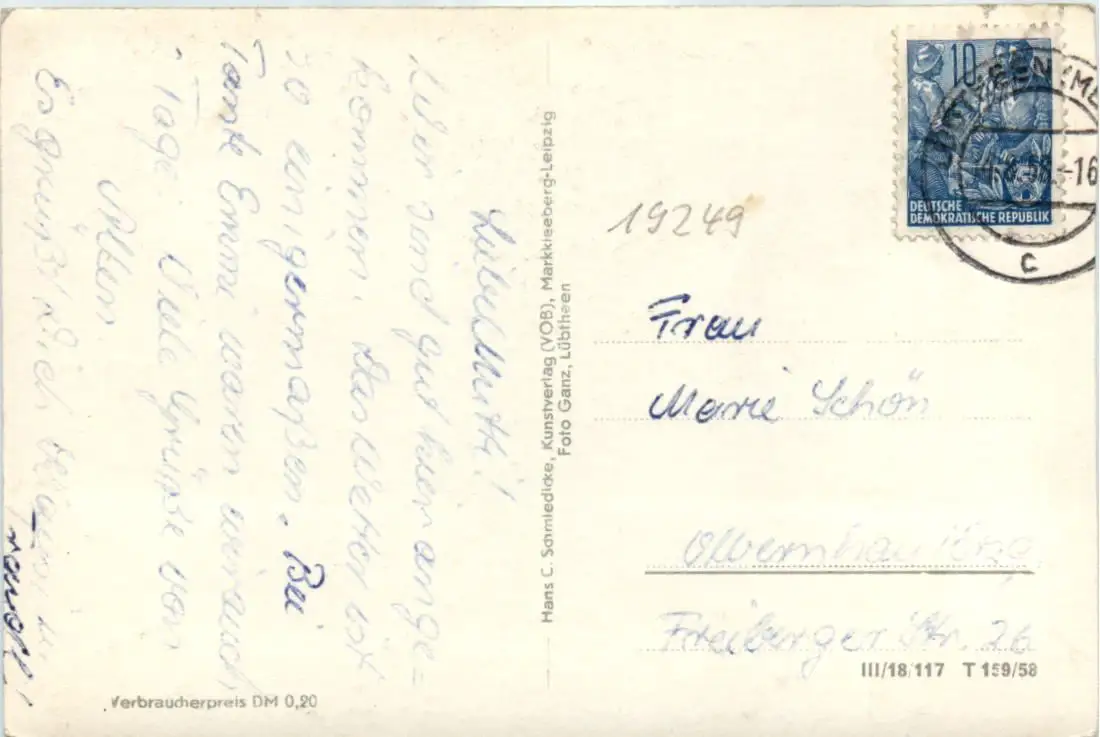 Liebe Mutti!
Wir sind gut hier ange=
kommen. Das Wetter ist
so einigermaßen. Bei
Tante Emmi waren wir auch
Tage. Viele Grüße von
Allen.
Es grüßt Dich
Hans C. Schmiedicke, Kunstverlag (VOB), Markkleeberg-Leipzig
Foto Ganz, Lübtheen
Verbraucherpreis DM 0,20
10
DEUTSCHE
DEMOKRATISCHE REPUBLIK
-16
C
19249
Frau
Marie Schön
Olbernhau/Erzg
Freiberger Str. 26
III/18/117 T 159/58